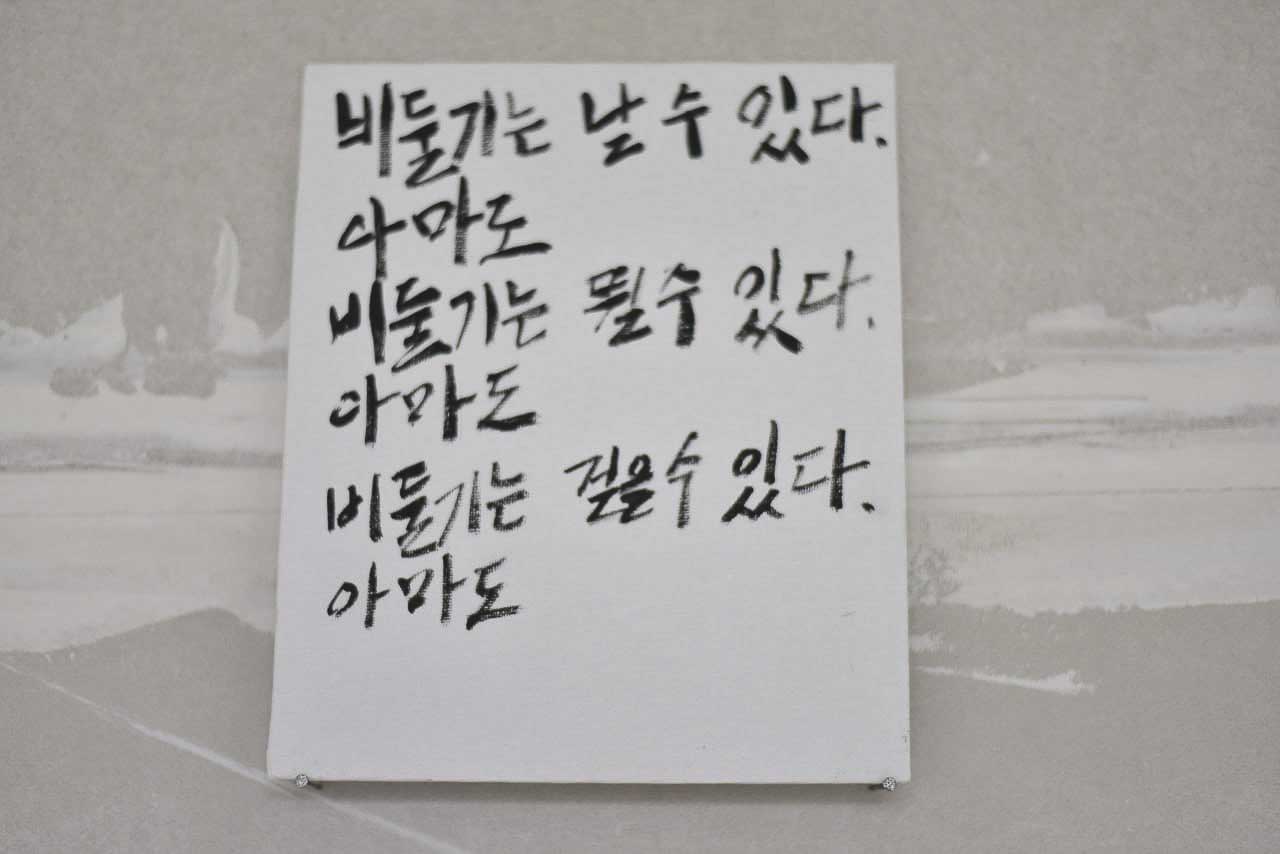 비둘기는 날 수 있다.
아마도
비둘기는 뛸 수 있다.
아마도
비둘기는 짖을 수 있다.
아마도